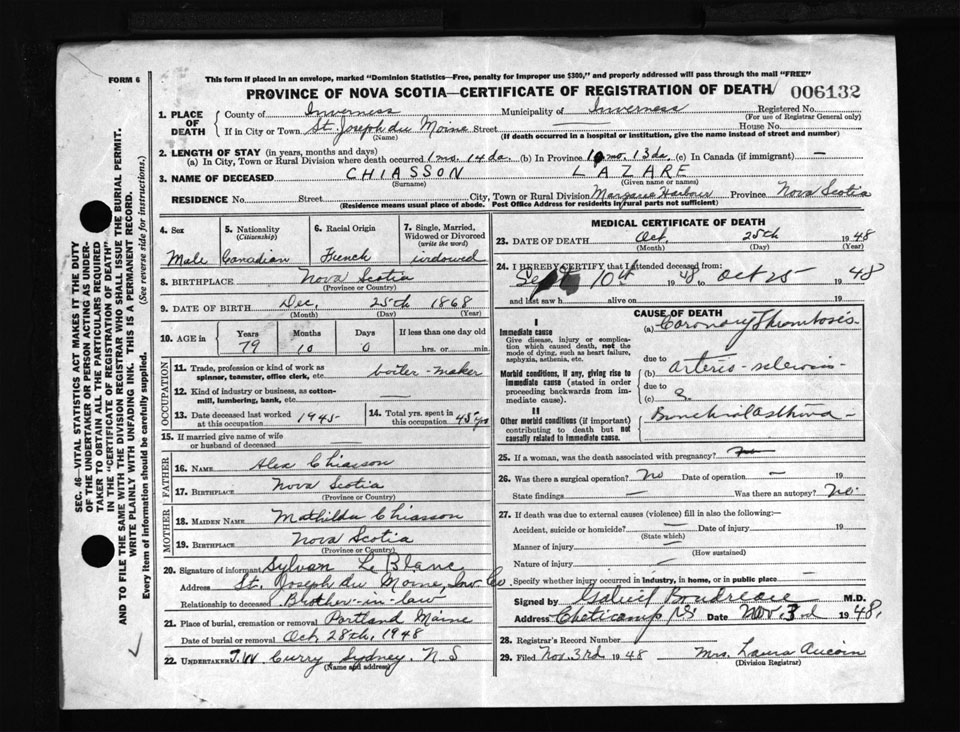 FORM 6
This form if placed in an envelope, marked "Dominion Statistics—Free, penalty for improper use $300," and properly addressed will pass through the mail "FREE"
PROVINCE OF NOVA SCOTIA—CERTIFICATE OF REGISTRATION OF DEATH 006132
1. PLACE OF DEATH
County of Inverness Municipality of Inverness Registered No.
(For use of Registrar General only)
If in City or Town St. Joseph du Moine Street — House No.
(Name) (If death occurred in a hospital or institution, give the name instead of street and number)
2. LENGTH OF STAY (in years, months and days)
(a) In City, Town or Rural Division where death occurred 1 mo. 14 da. (b) In Province 1 mo. 13 da. (c) In Canada (if immigrant) —
3. NAME OF DECEASED CHIASSON LAZARE
(Surname) (Given name or names)
RESIDENCE No. Street City, Town or Rural Division Margaree Harbour Province Nova Scotia
(Residence means usual place of abode. Post Office Address for residents in rural parts not sufficient)
4. Sex
Male
5. Nationality
(Citizenship)
Canadian
6. Racial Origin
French
7. Single, Married, Widowed or Divorced
(write the word)
widowed
8. BIRTHPLACE Nova Scotia
(Province or Country)
9. DATE OF BIRTH Dec. 25th 1868
(Month) (Day) (Year)
10. AGE in Years Months Days If less than one day old
79 10 0 hrs. or min.
OCCUPATION
11. Trade, profession or kind of work as spinner, teamster, office clerk, etc. boiler-maker
12. Kind of industry or business, as cotton-mill, lumbering, bank, etc. —
13. Date deceased last worked at this occupation 1945
14. Total yrs. spent in this occupation 45 yrs
15. If married give name of wife or husband of deceased —
FATHER
16. NAME Alex Chiasson
17. BIRTHPLACE Nova Scotia
(Province or Country)
MOTHER
18. MAIDEN NAME Mathilda Chiasson
19. BIRTHPLACE Nova Scotia
(Province or Country)
20. Signature of informant Sylvan Le Blanc
Address St. Joseph du Moine, Inv. Co
Relationship to deceased Brother-in-law
21. Place of burial, cremation or removal Portland Maine
Date of burial or removal Oct 28th, 1948
22. UNDERTAKER T.W Curry Sydney. N S
(Name and address)
MEDICAL CERTIFICATE OF DEATH
23. DATE OF DEATH Oct. 25th 1948
(Month) (Day) (Year)
24. I HEREBY CERTIFY that I attended deceased from:
Sept 10th 1948 to Oct 25 1948
and last saw h alive on 19
CAUSE OF DEATH
I
Immediate cause
Give disease, injury or complication which caused death, not the mode of dying, such as heart failure, asphyxia, asthenia, etc.
(a) Coronary Thrombosis
due to
Morbid conditions, if any, giving rise to immediate cause (stated in order proceeding backwards from immediate cause).
(b) arterio-sclerosis
due to
(c)
II
Other morbid conditions (if important) contributing to death but not causally related to immediate cause.
Bronchial asthma
25. If a woman, was the death associated with pregnancy?
26. Was there a surgical operation? No Date of operation — 19
State findings — Was there an autopsy? No.
27. If death was due to external causes (violence) fill in also the following:—
Accident, suicide or homicide? — Date of injury 19
(State which)
Manner of injury —
(How sustained)
Nature of injury —
Specify whether injury occurred in industry, in home, or in public place —
Signed by Gabriel Boudreau M.D.
Address Cheticamp NS Date Nov. 3rd 1948.
28. Registrar's Record Number
29. Filed Nov. 3rd 1948 Mrs. Laura Aucoin
(Division Registrar)
SEC. 46—VITAL STATISTICS ACT MAKES IT THE DUTY
OF THE UNDERTAKER OR PERSON ACTING AS UNDER-
TAKER TO OBTAIN ALL THE PARTICULARS REQUIRED
IN THE "CERTIFICATE OF REGISTRATION OF DEATH"
AND TO FILE THE SAME WITH THE DIVISION REGISTRAR WHO SHALL ISSUE THE BURIAL PERMIT.
WRITE PLAINLY WITH UNFADING INK. THIS IS A PERMANENT RECORD.
Every item of information should be carefully supplied. (See reverse side for instructions.)